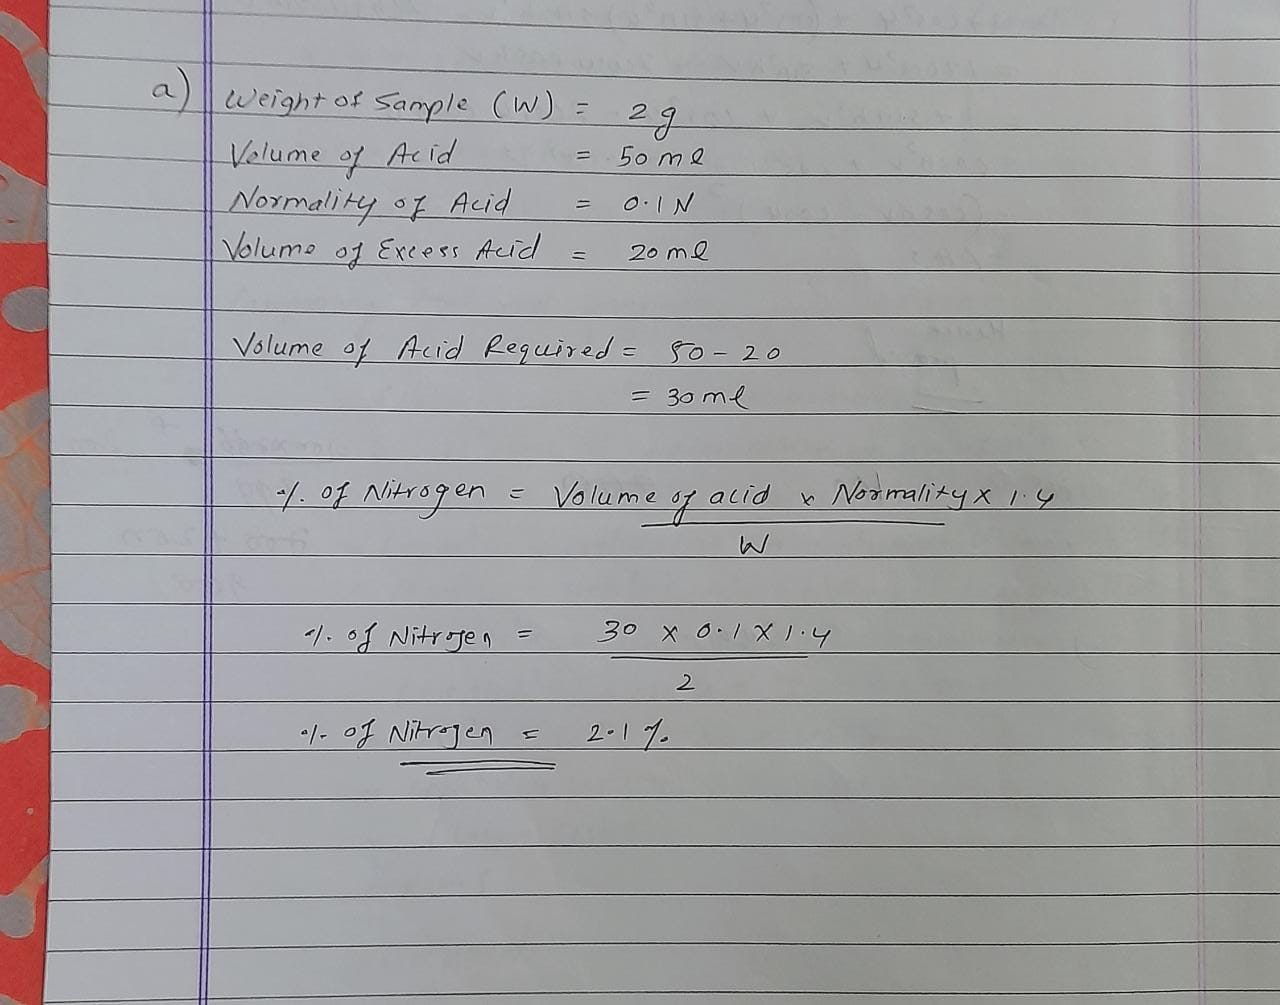 a) Weight of Sample (W) = 2 g
Volume of Acid = 50 ml
Normality of Acid = 0.1 N
Volume of Excess Acid = 20 ml
Volume of Acid Required = 50 - 20
= 30 ml
% of Nitrogen = Volume of acid x Normality x 1.4
W
% of Nitrogen = 30 x 0.1 x 1.4
2
% of Nitrogen = 2.1 %